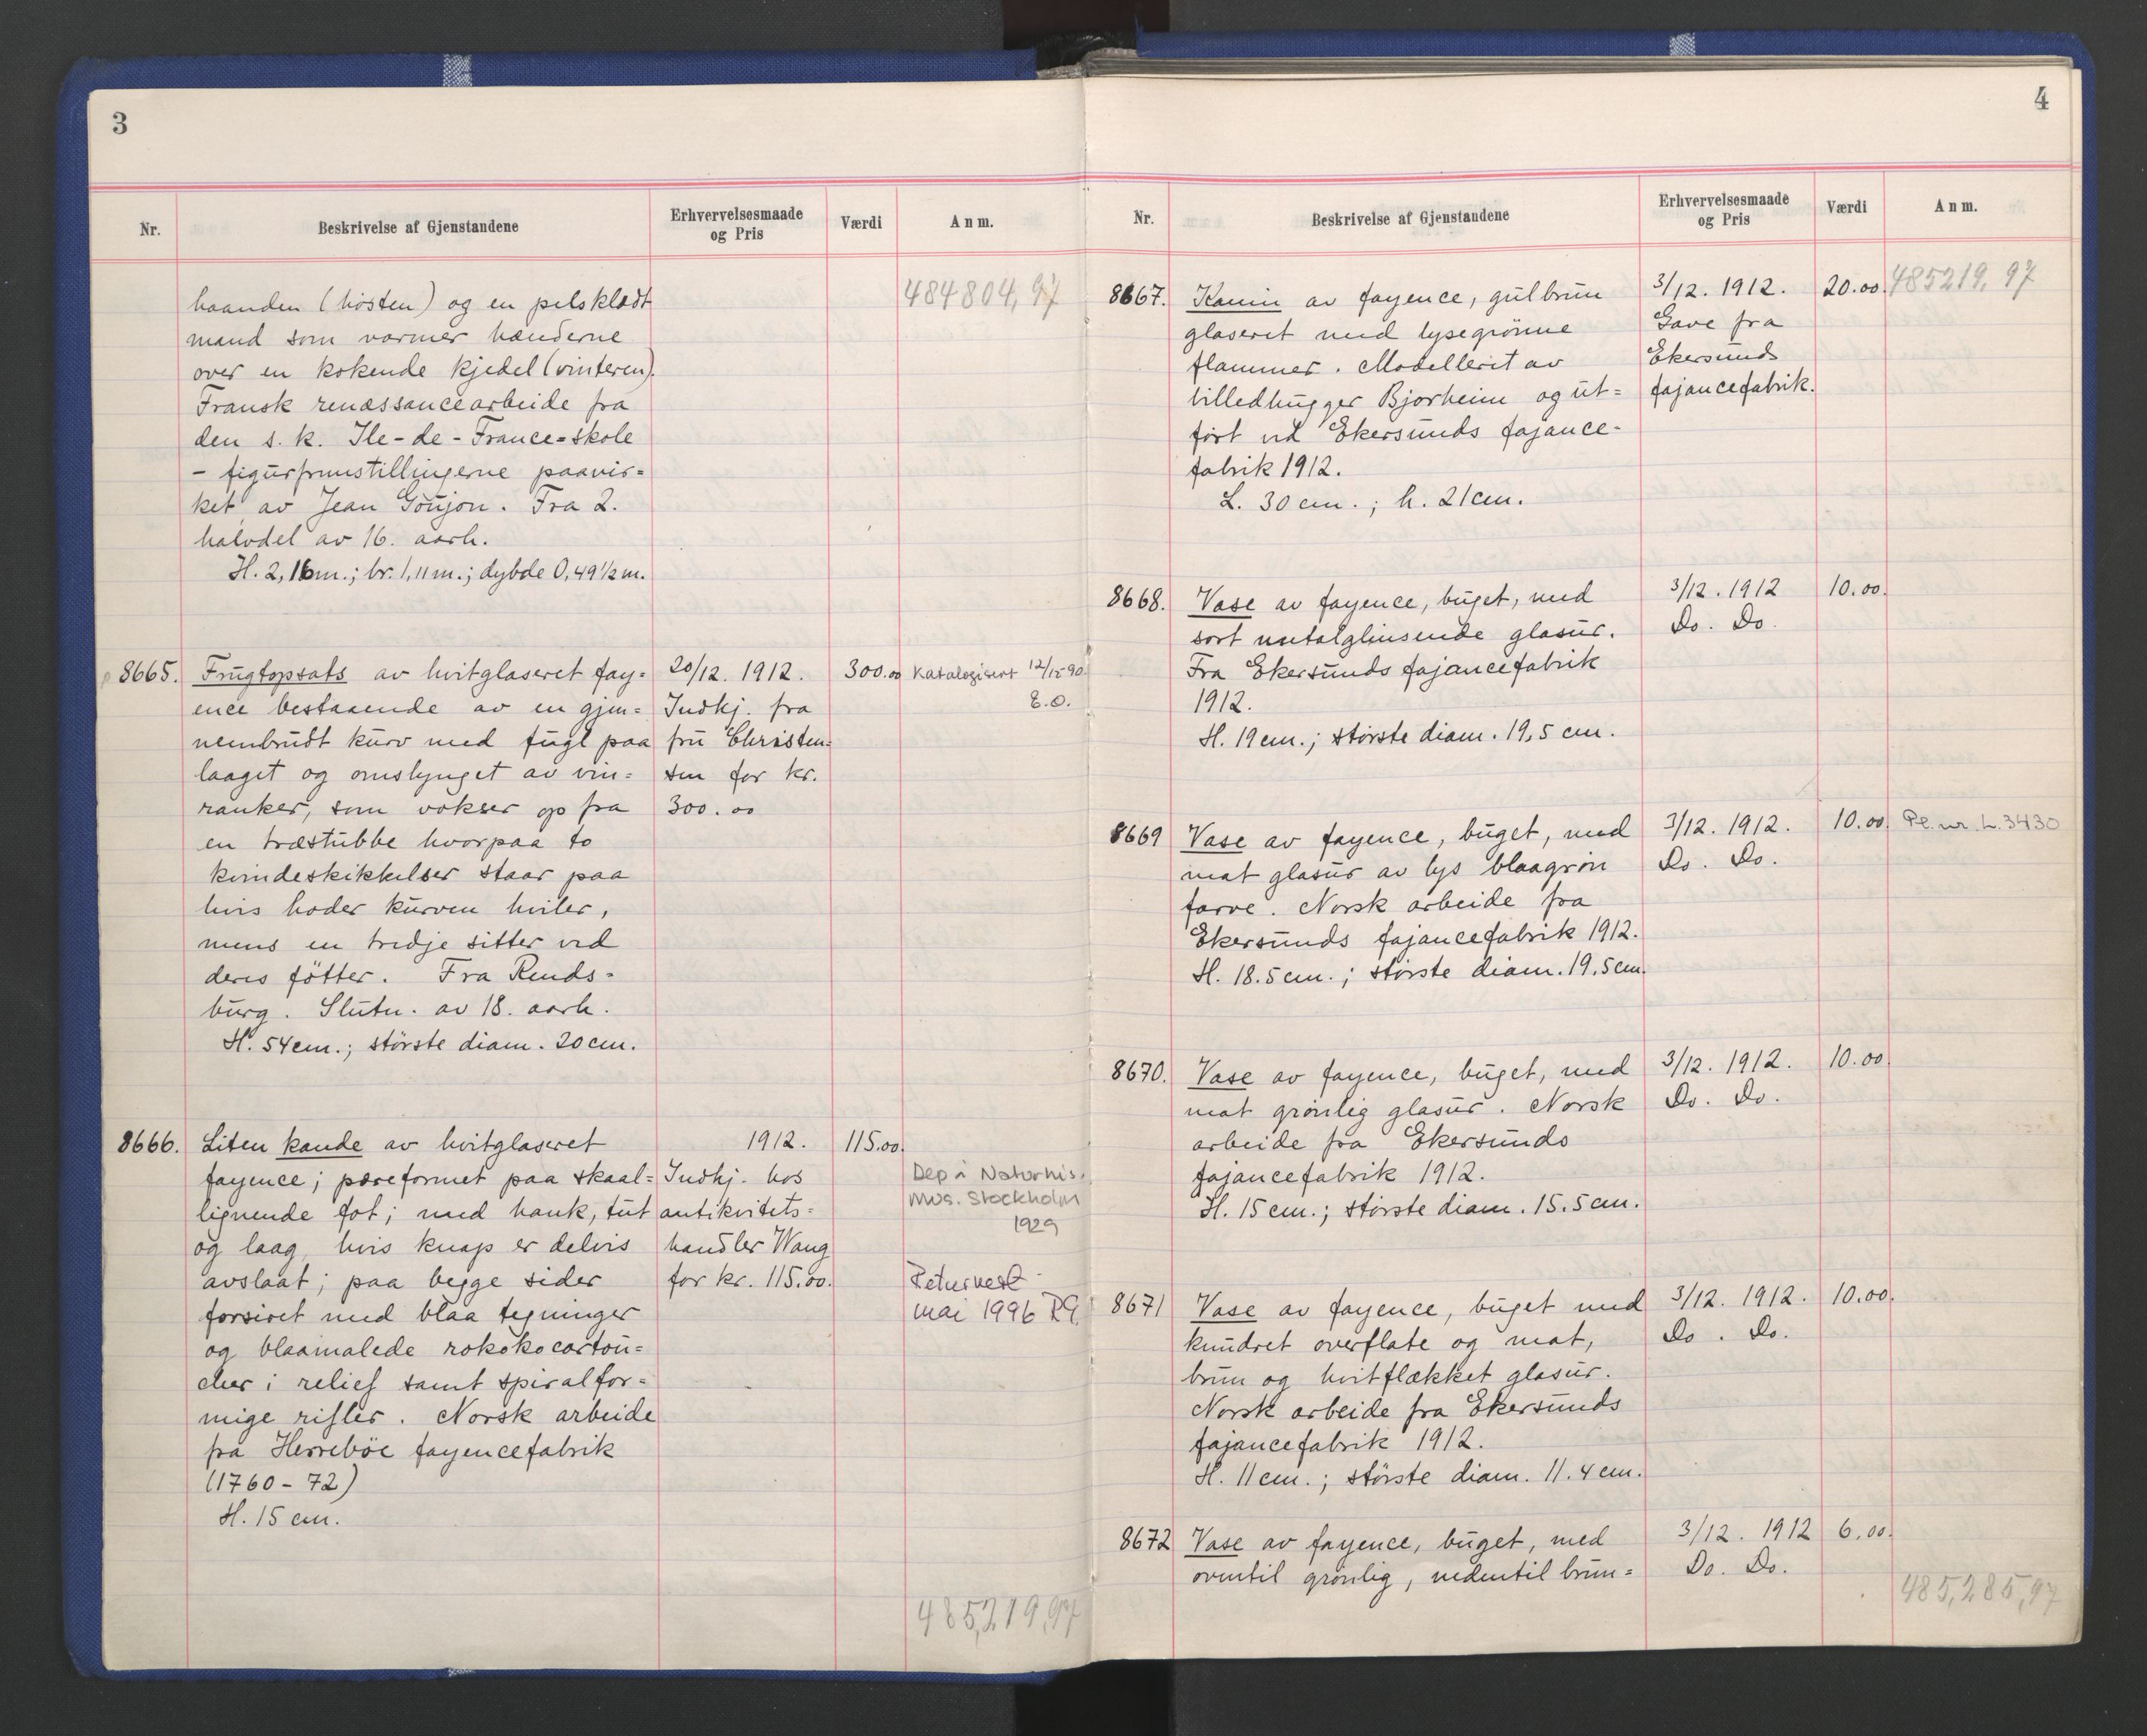 3
Nr.
Beskrivelse af Gjenstandene
Erhvervelsesmaade
og Pris
Værdi
Anm.
484804,97
haanden (høsten) og en pelsklædt
mand som varmer hænderne
over en kokende kjedel (vinteren).
Fransk renæssancearbeide fra
den s. k. Ile-de-France=skole
- figurfremstillingerne paavir=
ket av Jean Goujon. Fra 2.
halvdel av 16. aarh.
H. 2,16m.; br. 1,11m.; dybde 0,49 1/2 m.
8665.
Frugtopsats av hvitglaseret fay=
ence bestaaende av en gjen=
nembrudt kurv med fugl paa
laaget og omslynget av vin=
ranker, som vokser op fra
en træstubbe hvorpaa to
kvindeskikkelser staar paa
hvis hoder kurven hviler,
mens en tredje sitter ved
deres føtter. Fra Rends=
burg. Slutn. av 18. aarh.
H. 54cm.; største diam. 20cm.
20/12. 1912.
Indkj. fra
fru Christen=
sen for kr.
300.00
300.00
Katalogisert 12/12-90.
E.O.
8666.
Liten kande av hvitglaseret
fayence; pæreformet paa skaal=
lignende fot; med hank, tut
og laag, hvis knap er delvis
avslaat; paa begge sider
forsiret med blaa tegninger
og blaamalede rokokocartou=
cher i relief samt spiralfor=
mige rifler. Norsk arbeide
fra Herrebøe fayencefabrik
(1760-72)
H. 15 cm.
1912.
Indkj. hos
antikvitets=
handler Wang
for kr. 115.00.
115.00.
Dep i Naturhis.
Mus. Stockholm
1929
Returnert
mai 1996 RG.
485,219,97
4
Nr.
Beskrivelse af Gjenstandene
Erhvervelsesmaade
og Pris
Værdi
Anm.
485219,97
8667.
Kamin av fayence, gulbrun
glaseret med lysegrønne
flammer. Modelleret av
billedhugger Bjorheim og ut=
ført ved Ekersunds fajance-
fabrik 1912.
L. 30 cm.; h. 21cm.
3/12. 1912.
Gave fra
Ekersunds
fajancefabrik.
20.00.
8668.
Vase av fayence, buget, med
sort metalglinsende glasur.
Fra Ekersunds fajancefabrik
1912.
H. 19cm.; største diam. 19,5 cm.
3/12. 1912
Do. Do.
10.00.
8669
Vase av fayence, buget, med
mat glasur av lys blaagrøn
farve. Norsk arbeide fra
Ekersunds fajancefabrik 1912.
H. 18.5cm.; største diam. 19,5cm.
3/12. 1912.
Do. Do.
10.00
Pl. nr. L. 3430
8670.
Vase av fayence, buget, med
mat grønlig glasur. Norsk
arbeide fra Ekersunds
fajancefabrik 1912.
H. 15cm.; største diam. 15.5cm.
3/12. 1912.
Do. Do.
10.00.
8671
Vase av fayence, buget med
knudret overflate og mat,
brun og hvitflækket glasur.
Norsk arbeide fra Ekersunds
fajancefabrik 1912.
H. 11cm.; største diam. 11.4cm.
3/12. 1912.
Do. Do.
10.00.
8672
Vase av fayence, buget, med
oventil grønlig, nedentil brun=
3/12. 1912
Do. Do.
6.00.
485,285,97